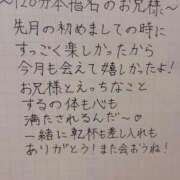 〜120分本指名のお兄様〜
先月の初めましての時に
すっごく楽しかったから
今月も会えて嬉しかったよ！
お兄様とえっちなこと
するの体も心も
満たされるんだ〜♡
一緒に乾杯も差し入れも
ありがとう！また会おうね！